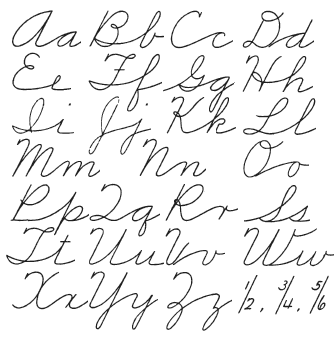 Aa Bb Cc Dd
Ee Ff Gg Hh
Ii Jj Kk Ll
Mm Nn Oo
Pp Qq Rr Ss
Tt Uu Vv Ww
Xx Yy Zz 1/2, 3/4, 5/6